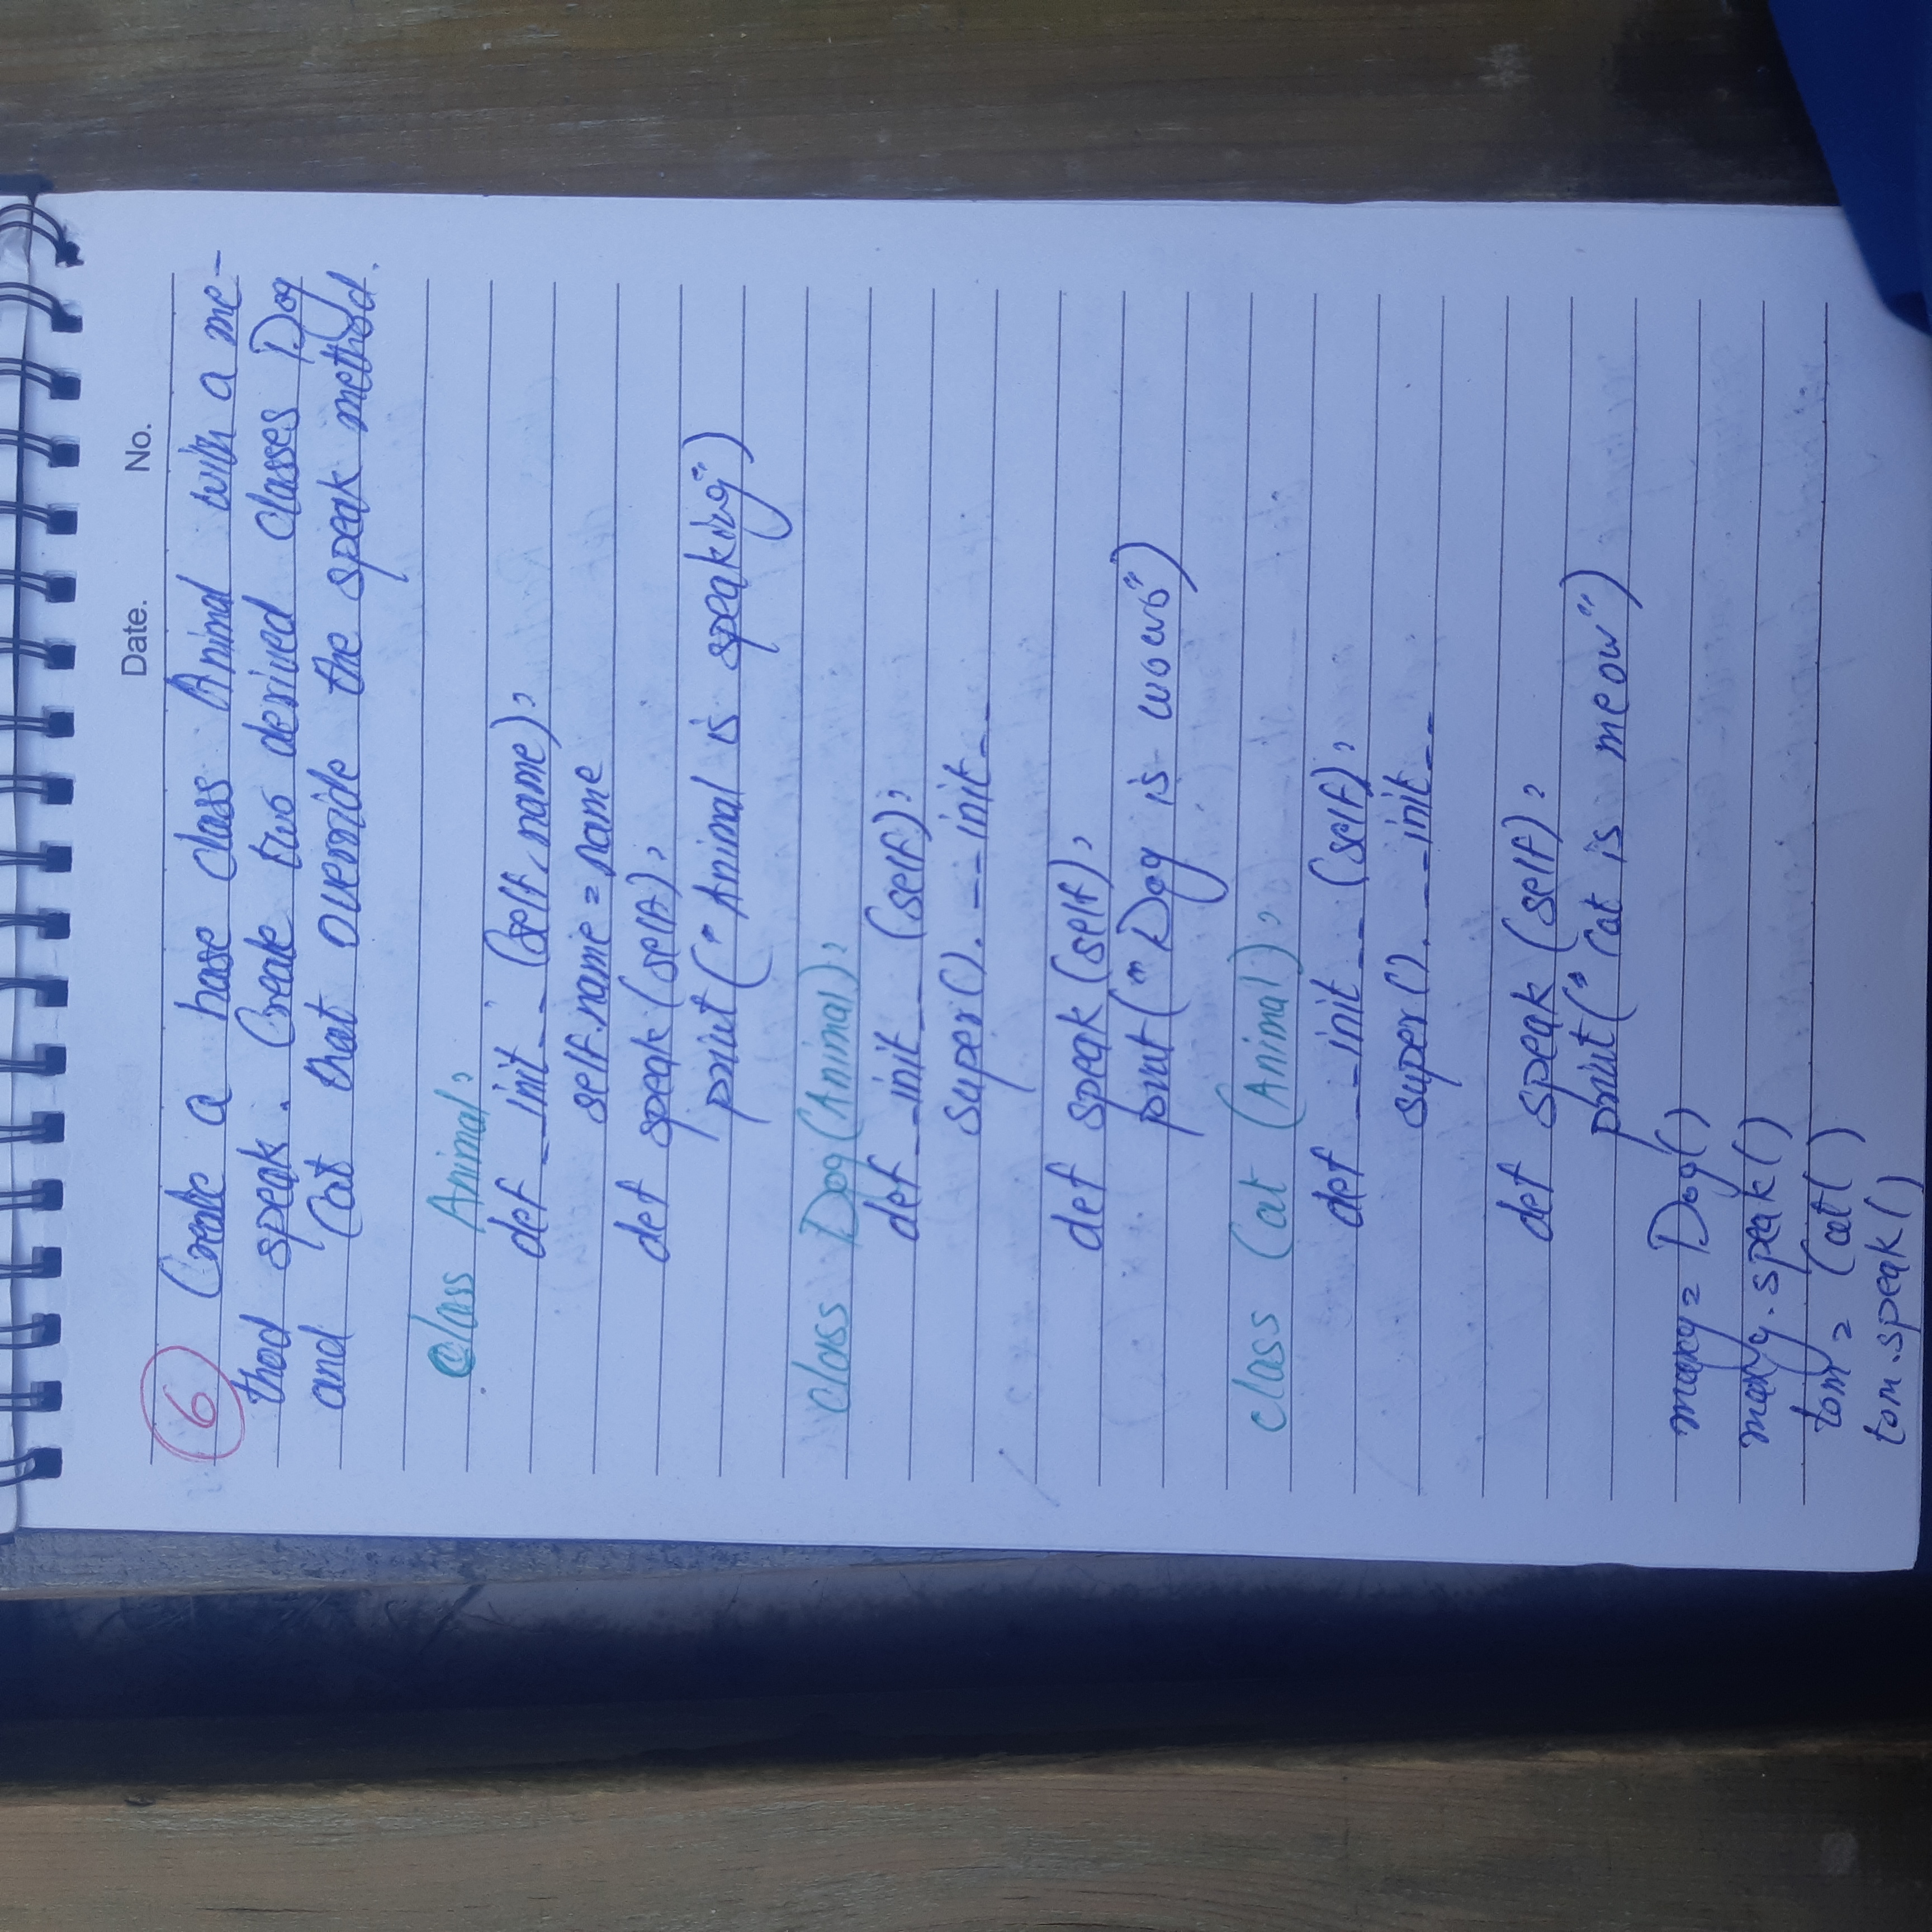 Date. No.
6 Create a base class Animal with a me-
thod speak. Create two derived classes Dog
and Cat that override the speak method.
Class Animal:
def __init__ (self, name):
self.name = name
def speak (self):
print("Animal is speaking")
class Dog (Animal):
def __init__ (self):
super().__init__
def speak (self):
print("Dog is wowo")
class Cat (Animal):
def __init__ (self):
super().__init__
def speak (self):
print("Cat is meow")
maxy = Dog()
maxy.speak()
tom = Cat()
tom.speak()